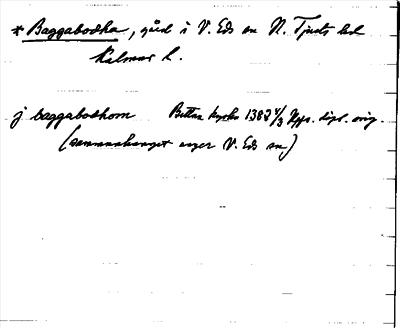 * Baggabodha, gård i V. Eds sn N. Tjusts hd
Kalmar l.
j baggabodhom Bettna kyrka 1382 4/3 Upps. dipl. orig.
(sammanhanget anger V. Eds sn)